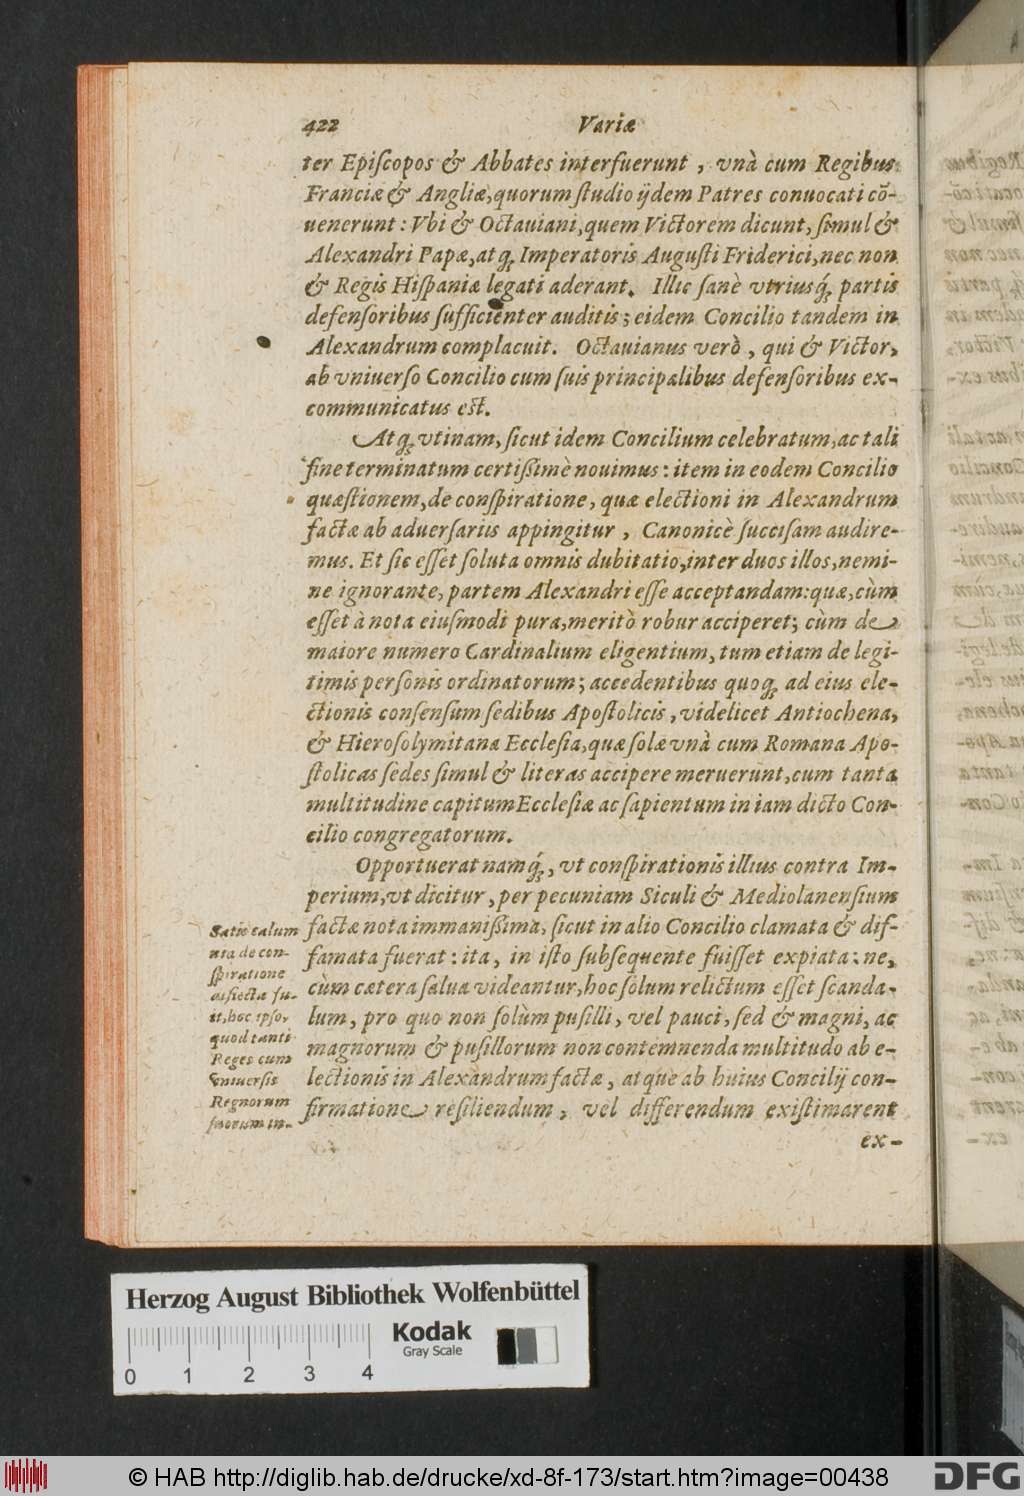 422 Variæ
ter Epiſcopos & Abbates interfuerunt, vnà cum Regibus
Franciæ & Angliæ, quorum ſtudio ijdem Patres conuocati cõ-
uenerunt: Vbi & Octauiani, quem Victorem dicunt, ſimul &
Alexandri Papæ, atq́; Imperatoris Auguſti Friderici, nec non
& Regis Hiſpaniæ legati aderant. Illic ſanè vtriusq́; partis
defenſoribus ſufficienter auditis; eidem Concilio tandem in
Alexandrum complacuit. Octauianus verò, qui & Victor,
ab vniuerſo Concilio cum ſuis principalibus defenſoribus ex-
communicatus eſt.
Atq; vtinam, ſicut idem Concilium celebratum, ac tali
fine terminatum certißimè nouimus: item in eodem Concilio
quæſtionem, de conſpiratione, quæ electioni in Alexandrum
factæ ab aduerſariis appingitur, Canonicè ſucciſam audire-
mus. Et ſic eſſet ſoluta omnis dubitatio, inter duos illos, nemi-
ne ignorante, partem Alexandri eſſe acceptandam: quæ, cùm
eſſet à nota eiuſmodi pura, meritò robur acciperet; cùm de
maiore numero Cardinalium eligentium, tum etiam de legi-
timis perſonis ordinatorum; accedentibus quoq; ad eius ele-
ctionis conſenſum ſedibus Apoſtolicis, videlicet Antiochena,
& Hieroſolymitana Eccleſia, quæ ſolæ vnà cum Romana Apo-
ſtolicas ſedes ſimul & literas accipere meruerunt, cum tanta
multitudine capitum Eccleſiæ ac ſapientum in iam dicto Con-
cilio congregatorum.
Opportuerat namq́;, vt conſpirationis illius contra Im-
perium, vt dicitur, per pecuniam Siculi & Mediolanenſium
factæ nota immanißima, ſicut in alio Concilio clamata & dif-
famata fuerat: ita, in iſto ſubſequente fuiſſet expiata: ne,
cùm cætera ſalua videantur, hoc ſolum relictum eſſet ſcanda-
lum, pro quo non ſolùm puſilli, vel pauci, ſed & magni, ac
magnorum & puſillorum non contemnenda multitudo ab e-
lectionis in Alexandrum factæ, atque ab huius Concilij con-
firmatione reſiliendum, vel differendum exiſtimarent
ex-
Satis calum
nia de con-
ſpiratione
fu-
it, hoc ipſo,
quod tanti
Reges cum
vniuerſis
Regnorum
ſuorum in-
Herzog August Bibliothek Wolfenbüttel
Kodak
Gray Scale
0 1 2 3 4
© HAB http://diglib.hab.de/drucke/xd-8f-173/start.htm?image=00438
DFG